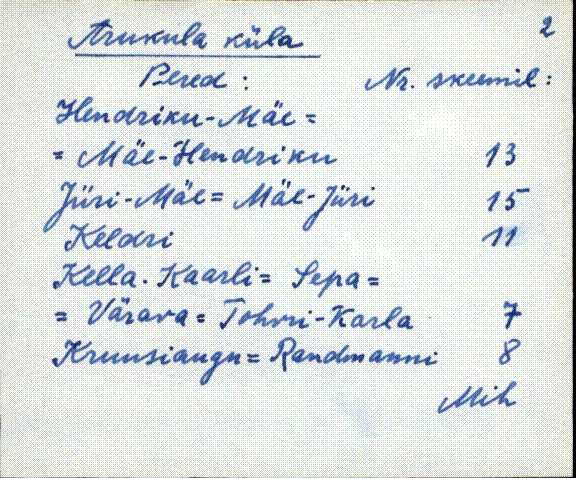 2
Arukula küla
Pered : Nr. skeemil :
Hendriku-Mäe =
= Mäe-Hendriku 13
Jüri-Mäe = Mäe-Jüri 15
Keldri 11
Kella-Kaarli = Sepa =
= Värava = Tohvri-Karla 7
Kruusiaugu = Randmanni 8
Mih